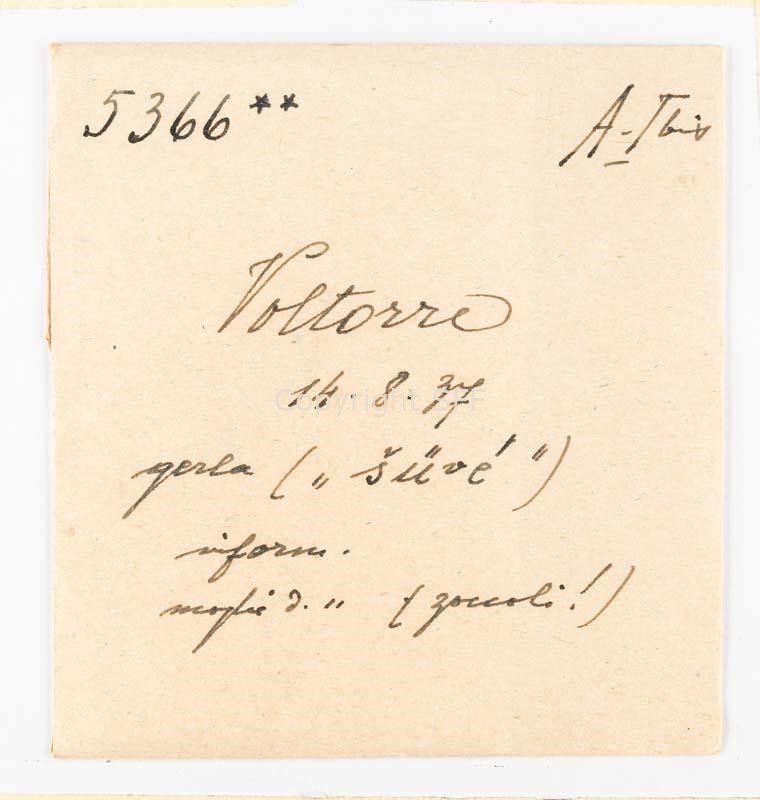 5366** A-I bis
Voltorre
14. 8. 37
gerla („ šüvé")
inform.
moglie d. " (zoccoli!)